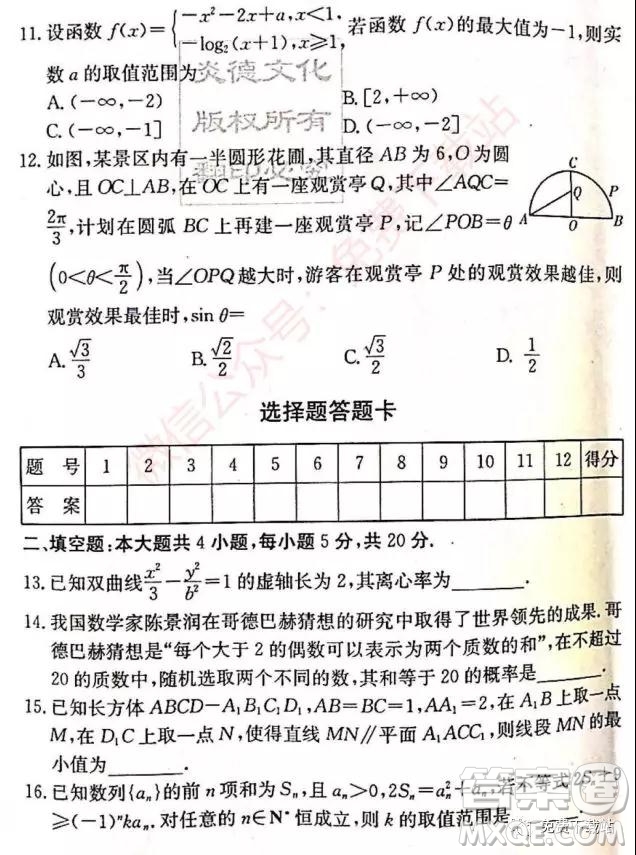 11. 设函数 f(x)={−x²−2x+a, x<1, −log₂(x+1), x≥1, 若函数 f(x) 的最大值为−1,则实
数 a 的取值范围为
A. (−∞,−2) B. [2,+∞)
C. (−∞,−1] D. (−∞,−2]
炎德文化
版权所有
12. 如图,某景区内有一半圆形花圃,其直径 AB 为 6,O 为圆
心,且 OC⊥AB,在 OC 上有一座观赏亭 Q,其中∠AQC=
2π/3,计划在圆弧 BC 上再建一座观赏亭 P,记∠POB=θ
(0<θ<π/2),当∠OPQ 越大时,游客在观赏亭 P 处的观赏效果越佳,则
观赏效果最佳时,sin θ=
A. √3/3 B. √2/2 C. √3/2 D. 1/2
C
Q
P
A O B
选择题答题卡
题 号 1 2 3 4 5 6 7 8 9 10 11 12 得分
答 案
二、填空题:本大题共 4 小题,每小题 5 分,共 20 分.
13. 已知双曲线 x²/3−y²/b²=1 的虚轴长为 2,其离心率为________.
14. 我国数学家陈景润在哥德巴赫猜想的研究中取得了世界领先的成果.哥
德巴赫猜想是“每个大于 2 的偶数可以表示为两个质数的和”,在不超过
20 的质数中,随机选取两个不同的数,其和等于 20 的概率是________.
15. 已知长方体 ABCD−A₁B₁C₁D₁,AB=BC=1,AA₁=2,在 A₁B 上取一点
M,在 D₁C 上取一点 N,使得直线 MN∥平面 A₁ACC₁,则线段 MN 的最
小值为________.
16. 已知数列{aₙ}的前 n 项和为 Sₙ,且 aₙ>0,2Sₙ=aₙ²+aₙ,若不等式 2Sₙ+9
≥(−1)ⁿkaₙ. 对任意的 n∈N* 恒成立,则 k 的取值范围是
微信公众号:免费下载站
答案圈
MXQE.COM
免费下载站